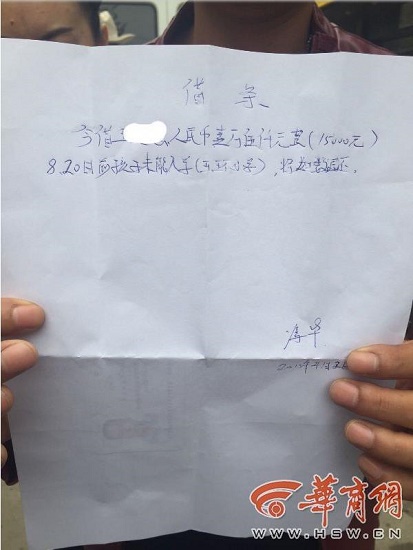 借条
今借王 人民币壹万伍仟元整(15000元)
8.20日前孩子未能入学(五环小学),将如数退还。
华商网
WWW.HSW.CN